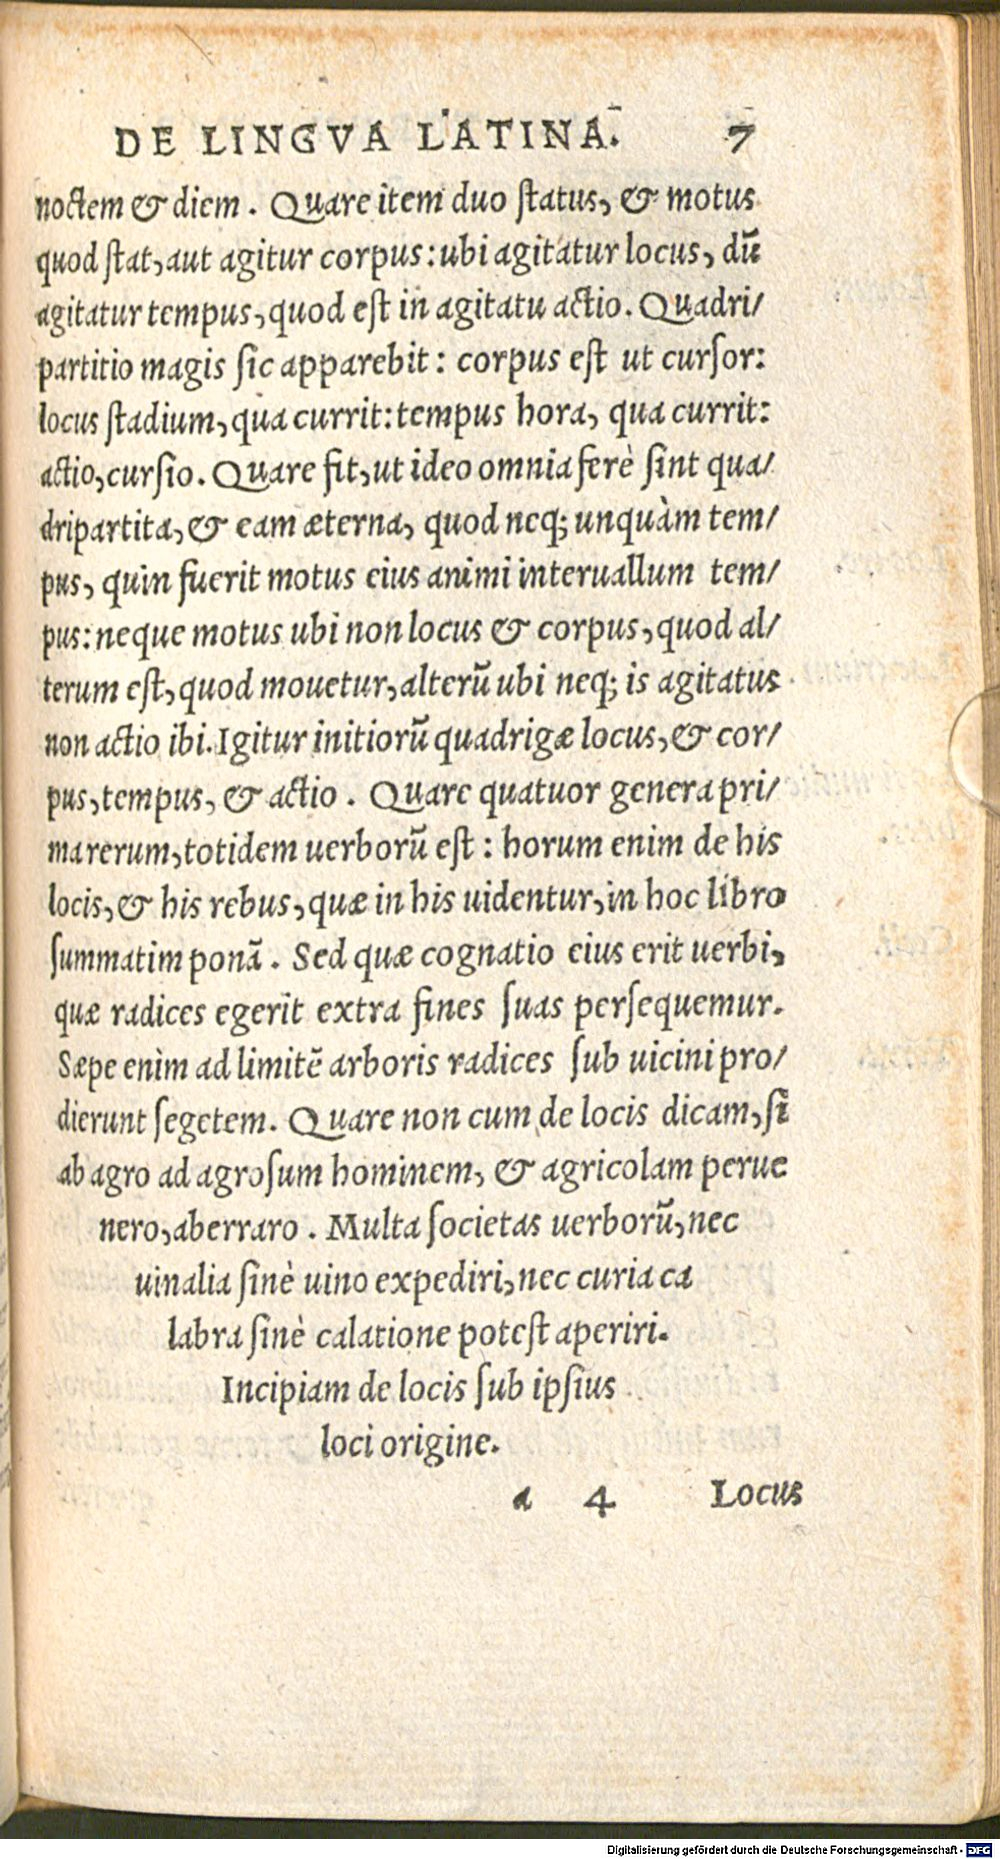 DE LINGVA LATINA. 7
noctem & diem. Quare item duo ſtatus, & motus
quod ſtat, aut agitur corpus: ubi agitatur locus, dū
agitatur tempus, quod eſt in agitatu actio. Quadri/
partitio magis ſic apparebit: corpus eſt ut curſor:
locus ſtadium, qua currit: tempus hora, qua currit:
actio, curſio. Quare fit, ut ideo omnia ferè ſint qua/
dripartita, & eam æterna, quod neq; unquàm tem/
pus, quin fuerit motus eius animi interuallum tem/
pus: neque motus ubi non locus & corpus, quod al/
terum eſt, quod mouetur, alterū ubi neq; is agitatus
non actio ibi. Igitur initiorū quadrigæ locus, & cor/
pus, tempus, & actio. Quare quatuor genera pri/
ma rerum, totidem uerborū eſt: horum enim de his
locis, & his rebus, quæ in his uidentur, in hoc libro
ſummatim ponā. Sed quæ cognatio eius erit uerbi,
quæ radices egerit extra fines ſuas perſequemur.
Sæpe enim ad limitē arboris radices ſub uicini pro/
dierunt ſegetem. Quare non cum de locis dicam, ſi
ab agro ad agroſum hominem, & agricolam perue
nero, aberraro. Multa ſocietas uerborū, nec
uinalia ſinè uino expediri, nec curia ca
labra ſinè calatione poteſt aperiri.
Incipiam de locis ſub ipſius
loci origine.
a 4 Locus
Digitalisierung gefördert durch die Deutsche Forschungsgemeinschaft - DFG